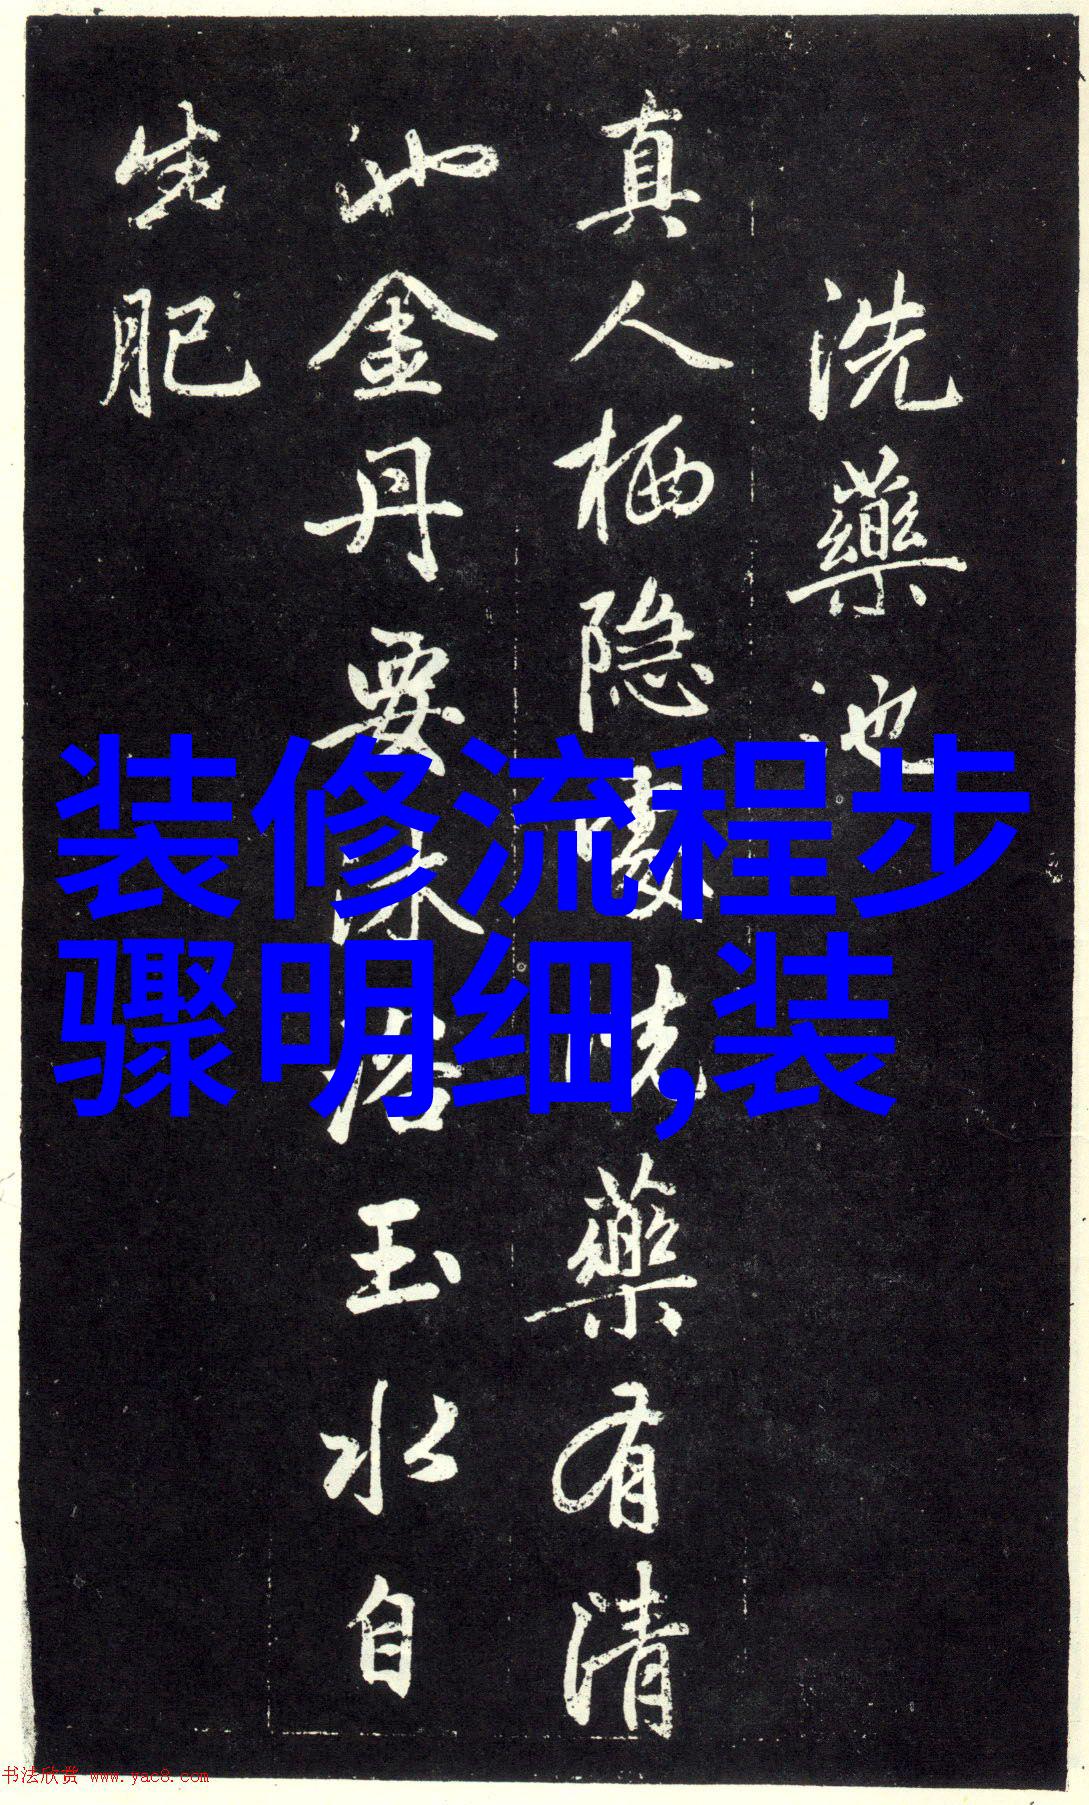 洗藥池
真人栖隐處洗藥有清
池金丹要沐浴玉水自
生肥
装修流程步
骤明细,装
书法欣赏 www.yac8.com